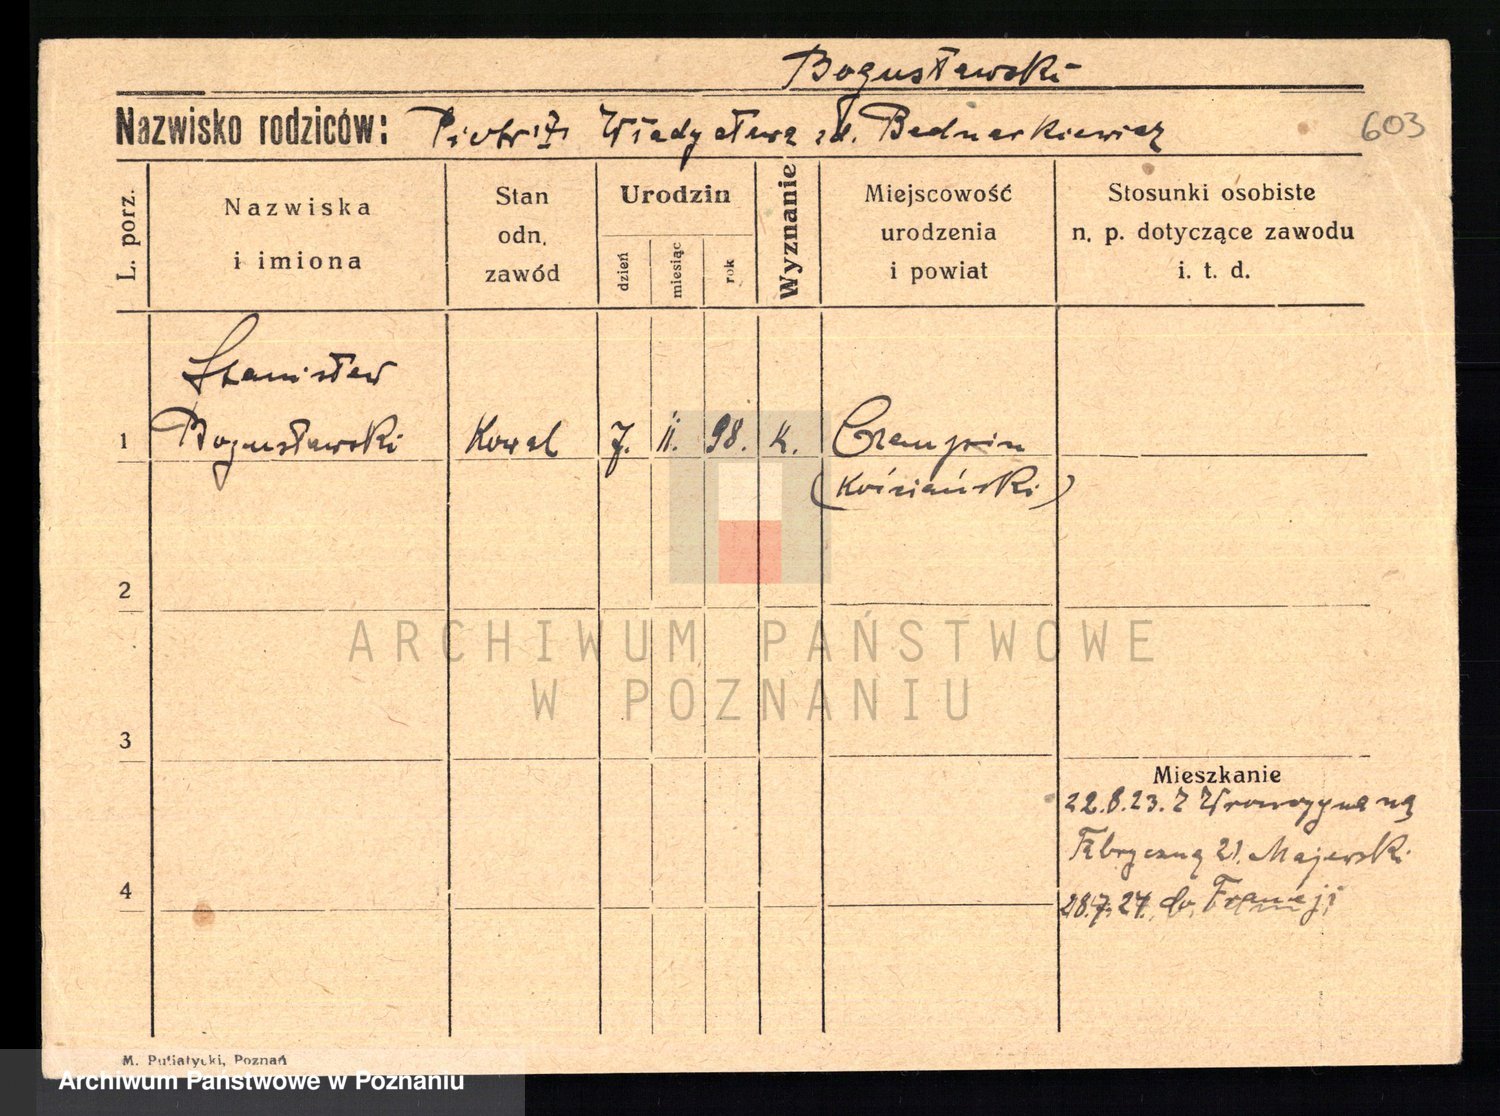 Bogusławski
Nazwisko rodziców: Piotr i Władysława zd. Bednarkiewicz
603
L. porz.
Nazwiska
i imiona
Stan
odn.
zawód
Urodzin
dzień
miesiąc
rok
Wyznanie
Miejscowość
urodzenia
i powiat
Stosunki osobiste
n. p. dotyczące zawodu
i. t. d.
Stanisław
1 Bogusławski Kowal 7. II. 98. K. Czempin
(Kościański)
2
ARCHIWUM PAŃSTWOWE
W POZNANIU
3
Mieszkanie
22.8.23. Z na
Fabryczną 21. Majewski
4
28.7.24. do Francji
M. Putiatycki, Poznań
Archiwum Państwowe w Poznaniu